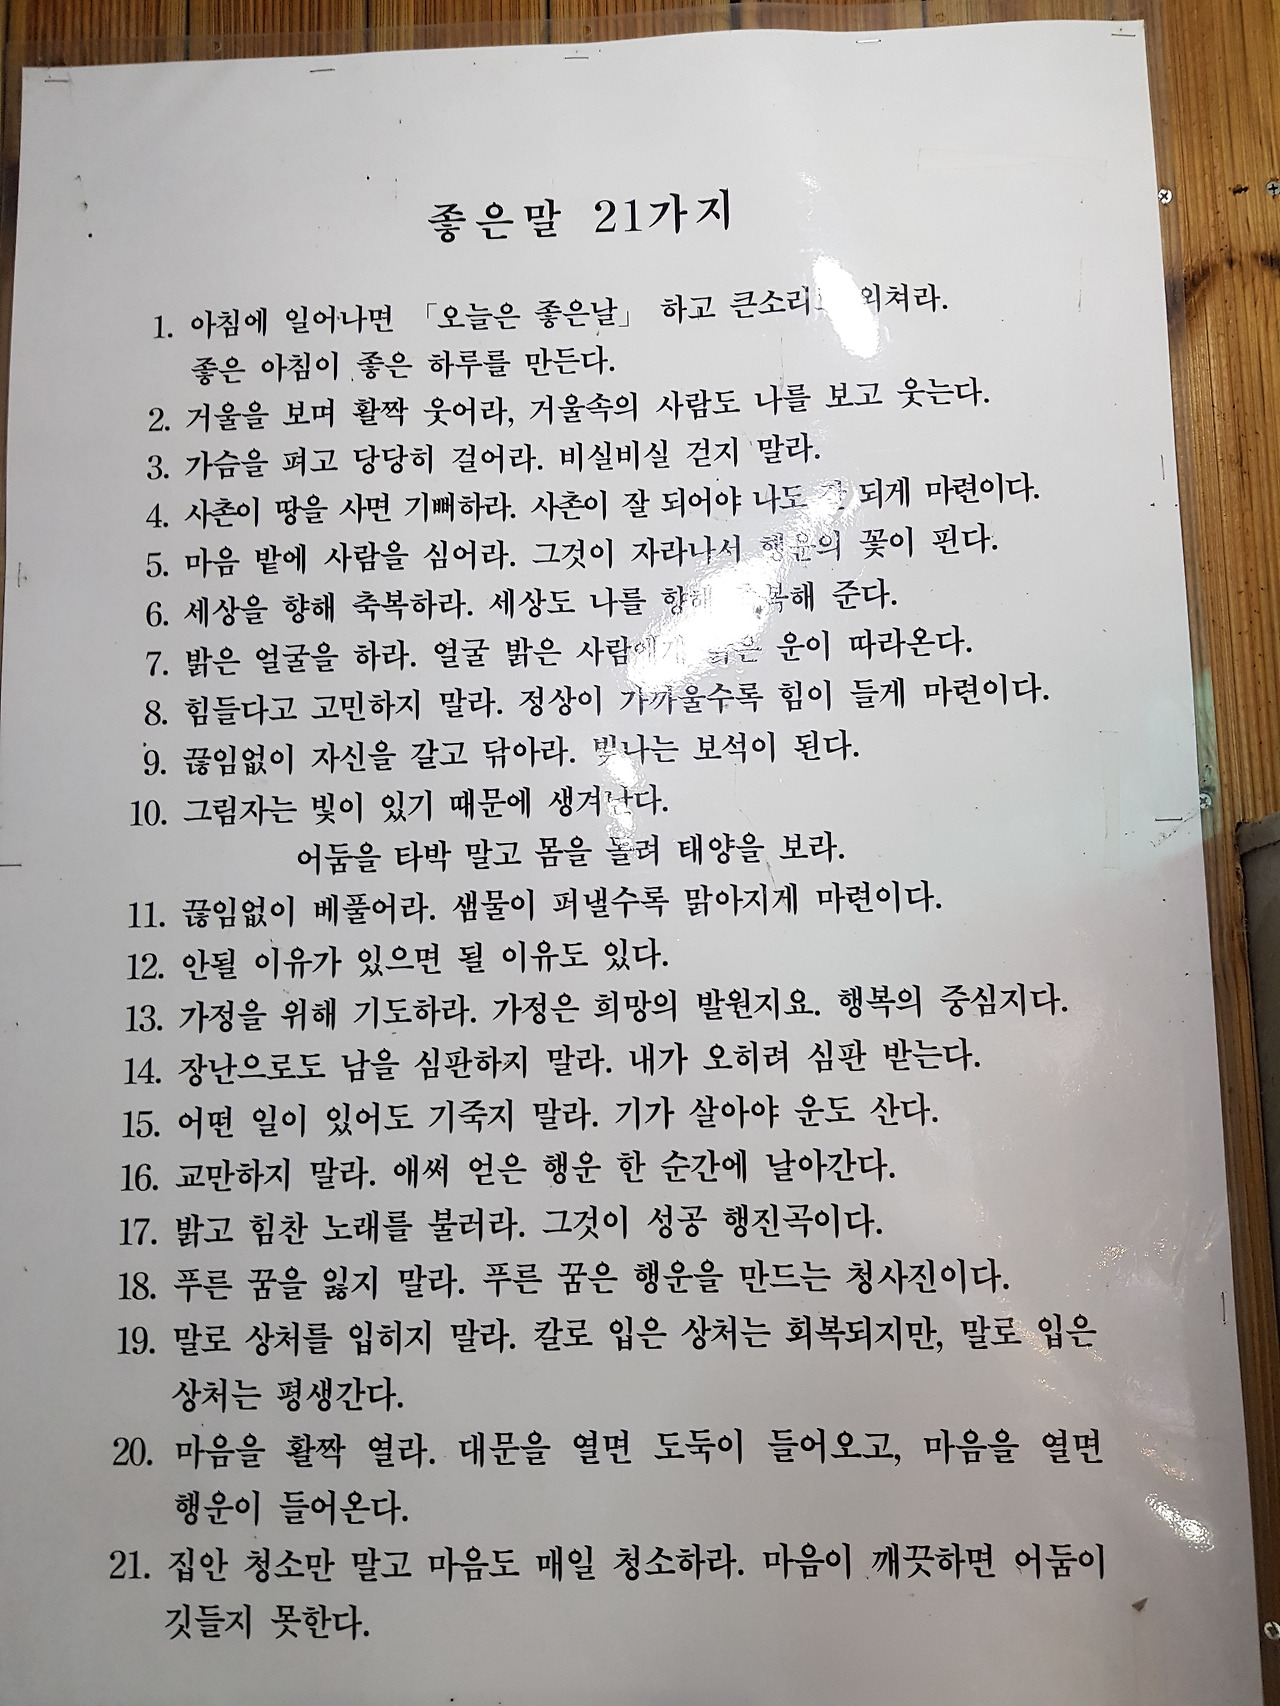 좋은말 21가지
1. 아침에 일어나면 「오늘은 좋은날」 하고 큰소리 외쳐라.
좋은 아침이 좋은 하루를 만든다.
2. 거울을 보며 활짝 웃어라, 거울속의 사람도 나를 보고 웃는다.
3. 가슴을 펴고 당당히 걸어라. 비실비실 걷지 말라.
4. 사촌이 땅을 사면 기뻐하라. 사촌이 잘 되어야 나도 잘 되게 마련이다.
5. 마음 밭에 사람을 심어라. 그것이 자라나서 행운의 꽃이 핀다.
6. 세상을 향해 축복하라. 세상도 나를 향해 축복해 준다.
7. 밝은 얼굴을 하라. 얼굴 밝은 사람에게 밝은 운이 따라온다.
8. 힘들다고 고민하지 말라. 정상이 가까울수록 힘이 들게 마련이다.
9. 끊임없이 자신을 갈고 닦아라. 빛나는 보석이 된다.
10. 그림자는 빛이 있기 때문에 생겨난다.
어둠을 타박 말고 몸을 돌려 태양을 보라.
11. 끊임없이 베풀어라. 샘물이 퍼낼수록 맑아지게 마련이다.
12. 안될 이유가 있으면 될 이유도 있다.
13. 가정을 위해 기도하라. 가정은 희망의 발원지요. 행복의 중심지다.
14. 장난으로도 남을 심판하지 말라. 내가 오히려 심판 받는다.
15. 어떤 일이 있어도 기죽지 말라. 기가 살아야 운도 산다.
16. 교만하지 말라. 애써 얻은 행운 한 순간에 날아간다.
17. 밝고 힘찬 노래를 불러라. 그것이 성공 행진곡이다.
18. 푸른 꿈을 잃지 말라. 푸른 꿈은 행운을 만드는 청사진이다.
19. 말로 상처를 입히지 말라. 칼로 입은 상처는 회복되지만, 말로 입은
상처는 평생간다.
20. 마음을 활짝 열라. 대문을 열면 도둑이 들어오고, 마음을 열면
행운이 들어온다.
21. 집안 청소만 말고 마음도 매일 청소하라. 마음이 깨끗하면 어둠이
깃들지 못한다.